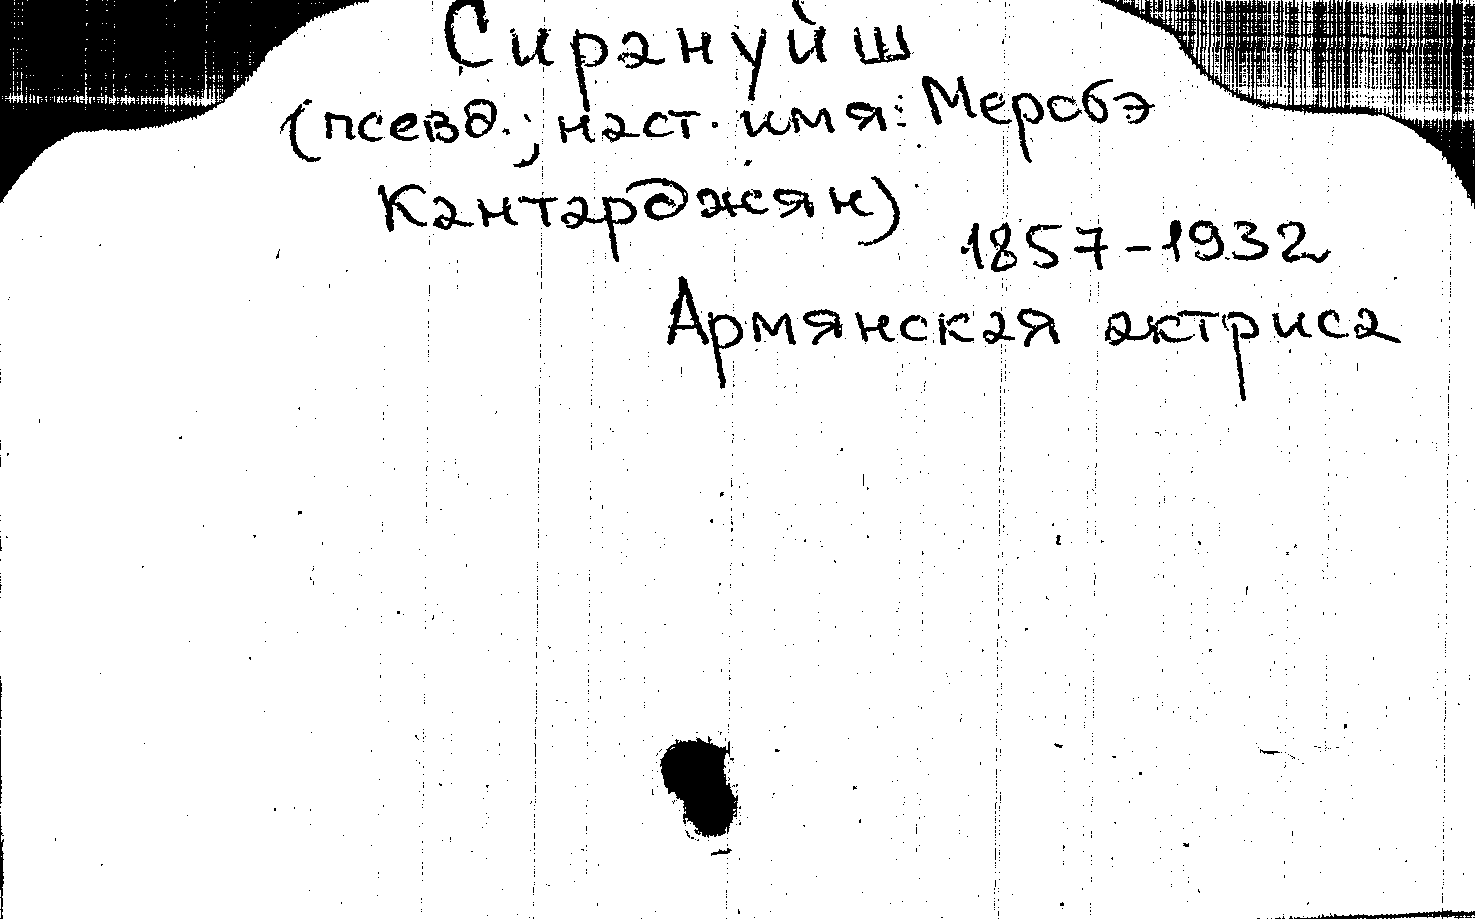 Сирануйш
(псевд.; наст. имя: Меробэ
Кантарджян)
1857-1932
Армянская актриса